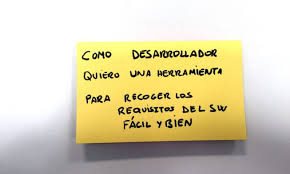 COMO DESARROLLADOR
QUIERO UNA HERRAMIENTA
PARA RECOGER LOS
REQUISITOS DEL SW
FÁCIL Y BIEN